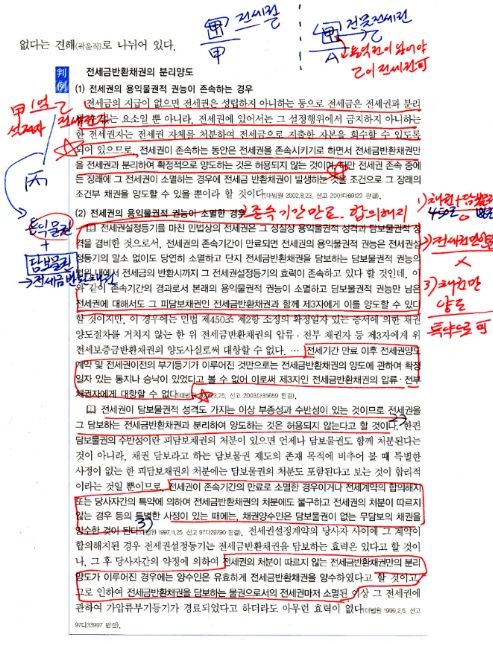 없다는 견해(곽윤직)로 나뉘어 있다.
전세권
甲
전전세권
A
판례
전세금반환채권의 분리양도
(1) 전세권의 용익물권적 권능이 존속하는 경우
전세금의 지급이 없으면 전세권은 성립하지 아니하는 등으로 전세금은 전세권과 분리
될 수 없는 요소일 뿐 아니라, 전세권에 있어서는 그 설정행위에서 금지하지 아니하는
한 전세권자는 전세권 자체를 처분하여 전세금으로 지출한 자본을 회수할 수 있도록
되어 있으므로, 전세권이 존속하는 동안은 전세권을 존속시키기로 하면서 전세금반환채권만
을 전세권과 분리하여 확정적으로 양도하는 것은 허용되지 않는 것이며, 다만 전세권 존속 중에
는 장래에 그 전세권이 소멸하는 경우에 전세금 반환채권이 발생하는 것을 조건으로 그 장래의
조건부 채권을 양도할 수 있을 뿐이라 할 것이다
(2) 전세권의 용익물권적 권능이 소멸한 경우
존속기간만료. 합의해지
전세권설정등기를 마친 민법상의 전세권은 그 성질상 용익물권적 성격과 담보물권적 성
격을 겸비한 것으로서, 전세권의 존속기간이 만료되면 전세권의 용익물권적 권능은 전세권설
정등기의 말소 없이도 당연히 소멸하고 단지 전세금반환채권을 담보하는 담보물권적 권능의
범위 내에서 전세금의 반환시까지 그 전세권설정등기의 효력이 존속하고 있다 할 것인데, 이
와 같이 존속기간의 경과로서 본래의 용익물권적 권능이 소멸하고 담보물권적 권능만 남은
전세권에 대해서도 그 피담보채권인 전세금반환채권과 함께 제3자에게 이를 양도할 수 있다
할 것이지만, 이 경우에는 민법 제450조 제2항 소정의 확정일자 있는 증서에 의한 채권
양도절차를 거치지 않는 한 위 전세금반환채권의 압류·전부 채권자 등 제3자에게 위
전세보증금반환채권의 양도사실로써 대항할 수 없다. … 전세기간 만료 이후 전세권양도
계약 및 전세권이전의 부기등기가 이루어진 것만으로는 전세금반환채권의 양도에 관하여 확정
일자 있는 통지나 승낙이 있었다고 볼 수 없어 이로써 제3자인 전세금반환채권의 압류·전부
채권자에게 대항할 수 없다
전세권이 담보물권적 성격도 가지는 이상 부종성과 수반성이 있는 것이므로 전세권을
그 담보하는 전세금반환채권과 분리하여 양도하는 것은 허용되지 않는다고 할 것이다. 한편
담보물권의 수반성이란 피담보채권의 처분이 있으면 언제나 담보물권도 함께 처분된다는
것이 아니라, 채권 담보라고 하는 담보물권 제도의 존재 목적에 비추어 볼 때 특별한
사정이 없는 한 피담보채권의 처분에는 담보물권의 처분도 포함된다고 보는 것이 합리적
이라는 것일 뿐이므로, 전세권이 존속기간의 만료로 소멸한 경우이거나 전세계약의 합의해지
또는 당사자간의 특약에 의하여 전세금반환채권의 처분에도 불구하고 전세권의 처분이 따르지
않는 경우 등의 특별한 사정이 있는 때에는, 채권양수인은 담보물권이 없는 무담보의 채권을
양수한 것이 된다
전세권설정계약의 당사자 사이에 그 계약이
합의해지된 경우 전세권설정등기는 전세금반환채권을 담보하는 효력은 있다고 할 것이
나, 그 후 당사자간의 약정에 의하여 전세권의 처분이 따르지 않는 전세금반환채권만의 분리
양도가 이루어진 경우에는 양수인은 유효하게 전세금반환채권을 양수하였다고 할 것이고,
그로 인하여 전세금반환채권을 담보하는 물권으로서의 전세권마저 소멸된 이상 그 전세권에
관하여 가압류부기등기가 경료되었다고 하더라도 아무런 효력이 없다
(대법원 1999.2.5. 선고
97다33997 판결).
丙
용익물권
+
담보물권